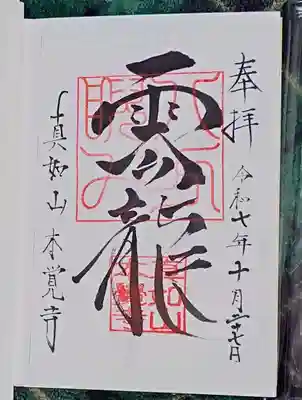 奉拝
令和七年十月二十七日
雲龍
真如山本覚寺